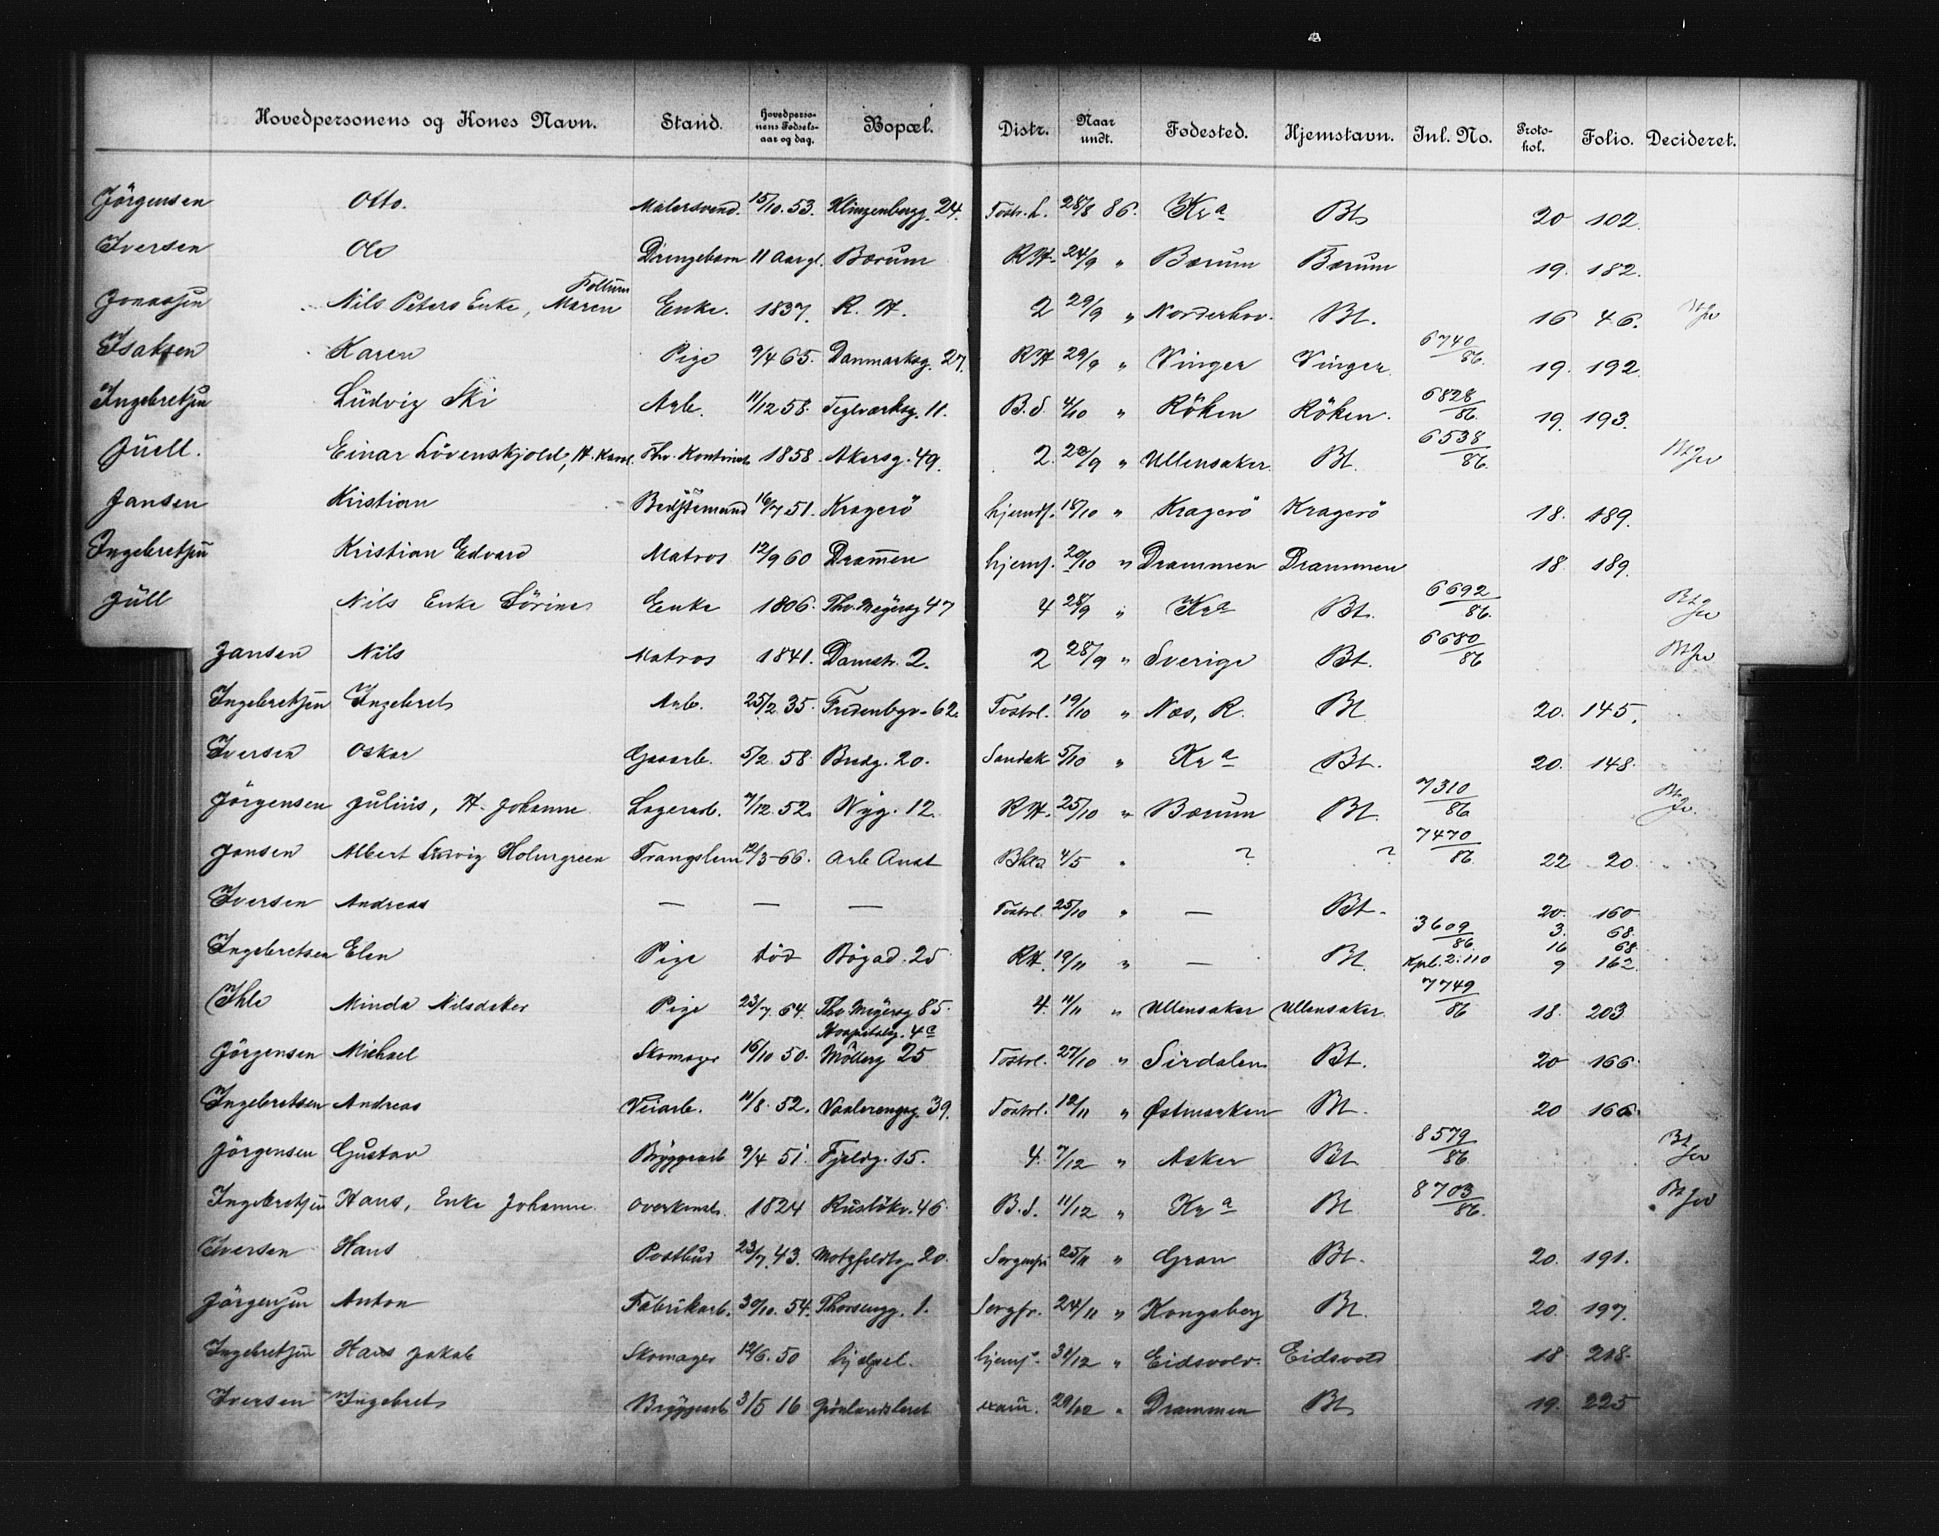 Hovedpersonens og Kones Navn. Stand. Hovedpersonens Fødselsaar og dag. Bopæl. Distr. Naar undt. Fødested. Hjemstavn. Inl. No. Protokol. Folio. Decideret.
Jörgensen Otto. Malersvend. 15/10. 53. Klingenbergg. 24. 28/8 86. Kra Bt. 20 102.
Iversen Ole Drengebarn 11 Aar gl. Bærum R.H. 24/9 " Bærum Bærum 19. 182.
Jonassen Nils Peters Enke, Maren Enke. 1837. R. H. 2 29/9 " Norderhov. Bt. 16 46.
Isaksen Karen Pige 9/4 65. Danmarksg. 27. R.H. 29/9 " Vinger Vinger 6740/86. 19. 192.
Ingebretsen Ludvig Ski Arb. 11/12 58. Teglværksg. 11. B.S. 4/10 " Röken Röken. 6828/86. 19. 193.
Juell. Einar Lövenskjold, H. 1858. Akersg. 49. 2. 20/9 " Ullensaker Bt. 6538/86.
Jansen Kristian 16/7 51. Kragerö hjemf. 18/10 " Kragerö Kragerö 18. 189.
Ingebretsen Kristian Edvard Matros 12/9 60 Dramen hjemf. 20/10 " Drammen Drammen 18. 189.
Juell Nils Enke Sörine Enke 1806. Thv. Meyersg 47 4 28/9 " Kra Bt. 6692/86.
Jansen Nils Matros 1841. Damstr. 2. 2 28/9 " Sverige Bt. 6680/86
Ingebretsen Ingebret Arb. 25/2. 35. 62. Tostrl. 19/10 " Næs, R. Bt 20. 145.
Iversen Oskar Gasarb. 5/2. 58. Bredg. 20. Sandak 5/10 " Kra Bt. 20. 148.
Jörgensen Julius, H. Johanne Lagerarb. 7/12. 52. Nyg. 12. R.H. 25/10 " Bærum Bt. 7310/86
Jansen Albert Ludvig Holmgreen 12/3-66. Arb Anst 4/5 " ? ? 7470/86. 22 20.
Iversen Andreas — — — Tostrl. 25/10 " — Bt. 20. 160.
Ingebretsen Elen Pige död Bögad. 25 R.H. 19/11 " — Bt. 3609/86. Kpl. 2. 110 3. 68. 16 68. 9 162
Ihle Minda Nilsdatter Pige 23/7. 64. Thv. Meyersg 85. 4. 11/11 " Ullensaker Ullensaker. 7749/86 18. 203
Hospitalsg. 4c
Jörgensen Michael Skomager 16/10 50. Möllerg 25 Tostrl. 27/10 " Sirdalen Bt. 20 166.
Ingebretsen Andreas Veiarb. 11/8. 52. Vaalerengsg 39. Tostrl. 12/11 " Østmarken Bt. 20 166.
Jörgensen Gustav Bryggearb 9/4 51. Fjeldg. 15. 4. 7/12 " Asker Bt 8579/86
Ingebretsen Hans, Enke Johanne. 1824 Ruslökv. 46 B.S. 11/12 " Kra Bt 8703/86.
Iversen Hans Postbud 23/7. 43. Motzfeldtsg 20. 25/11 " Gran Bt. 20. 191.
Jörgensen Anton Fabrikarb. 30/10. 54. 1. Sorgfr. 24/11 " Kongsberg Bt. 20. 197.
Ingebretsen Hans Jakob Skomager 12/6. 50 hjemf. 31/12 " Eidsvold. Eidsvold 18. 218.
Iversen Ingebret Bryggearb 3/5 16 Grönlandsleret exam. 29/12 " Drammen Bt 19. 225